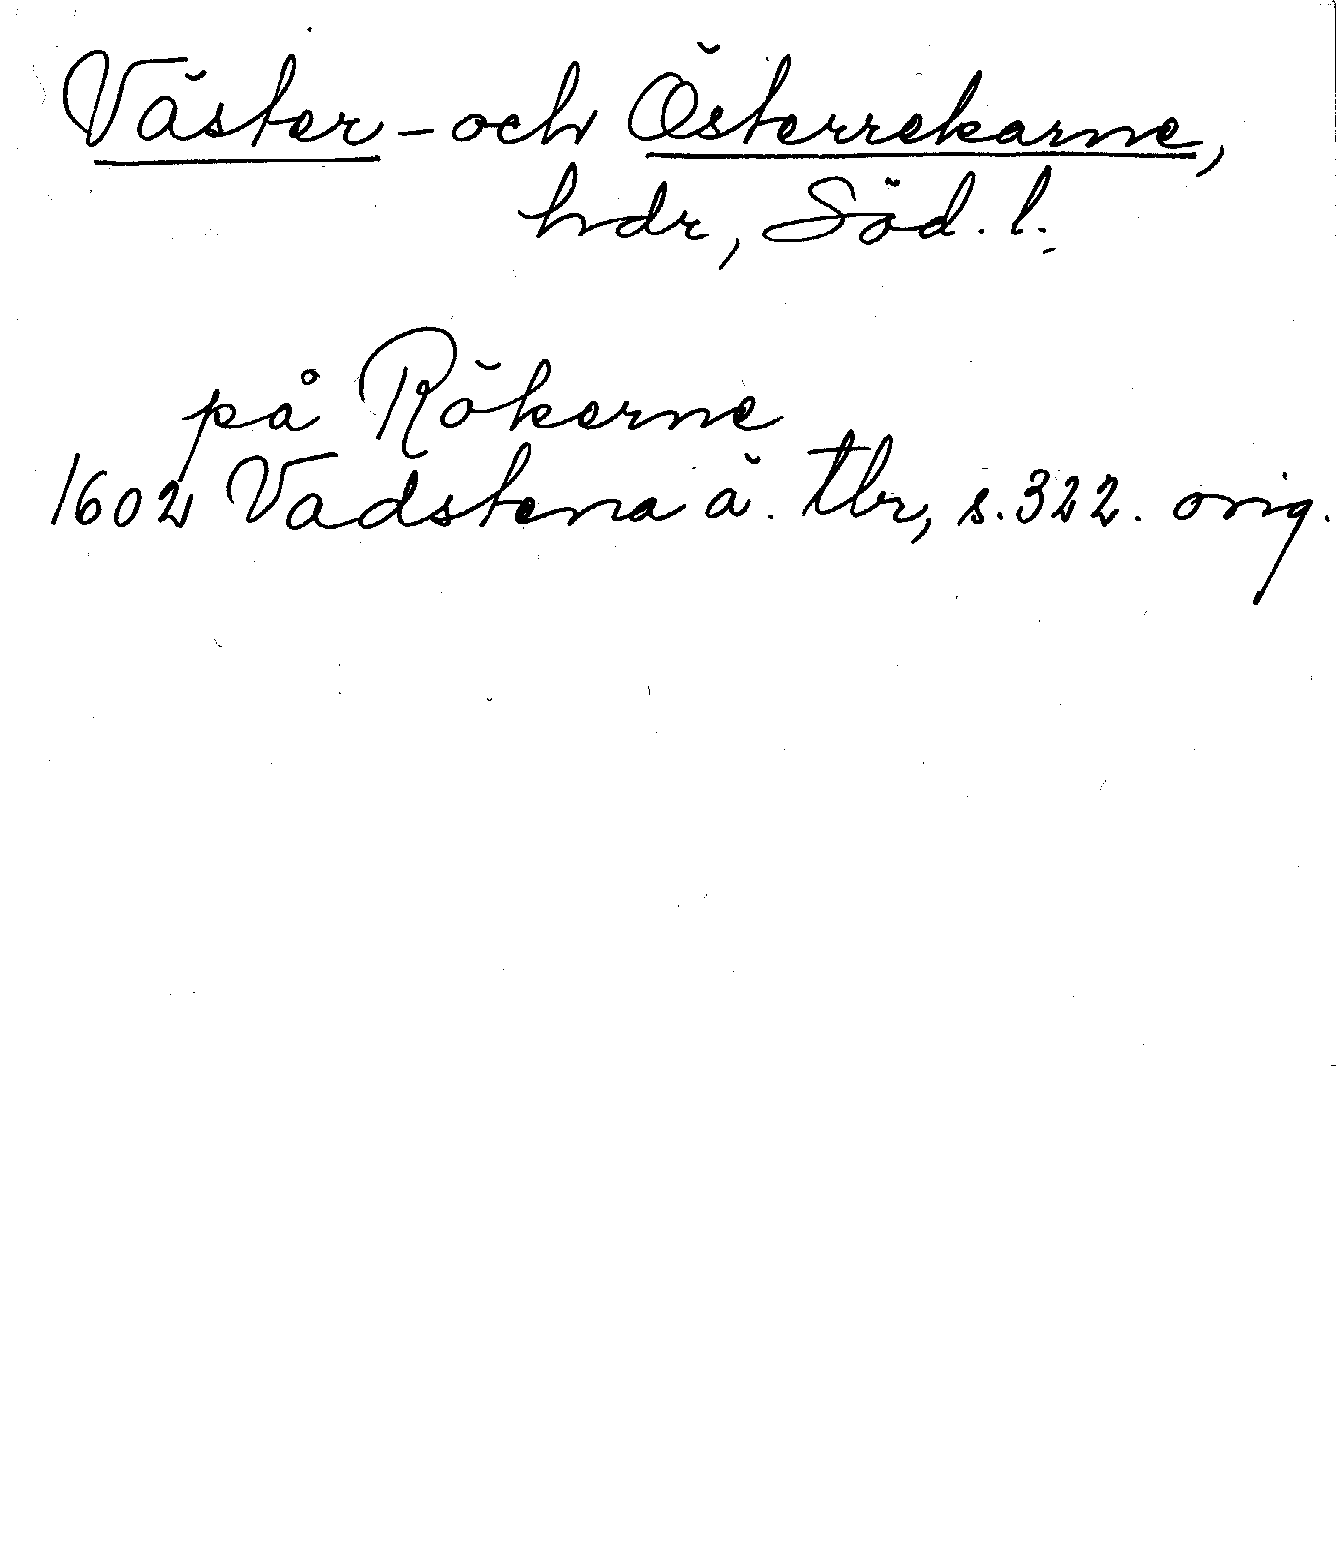 Väster- och Österrekarne,
hdr, Söd. l.
på Rökerne
1602 Vadstena ä. tbr, s. 322. orig.